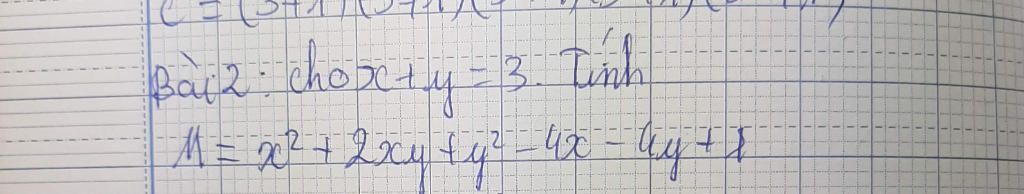 Bài 2: cho x + y = 3. Tính
M = x² + 2xy + y² - 4x - 4y + 1